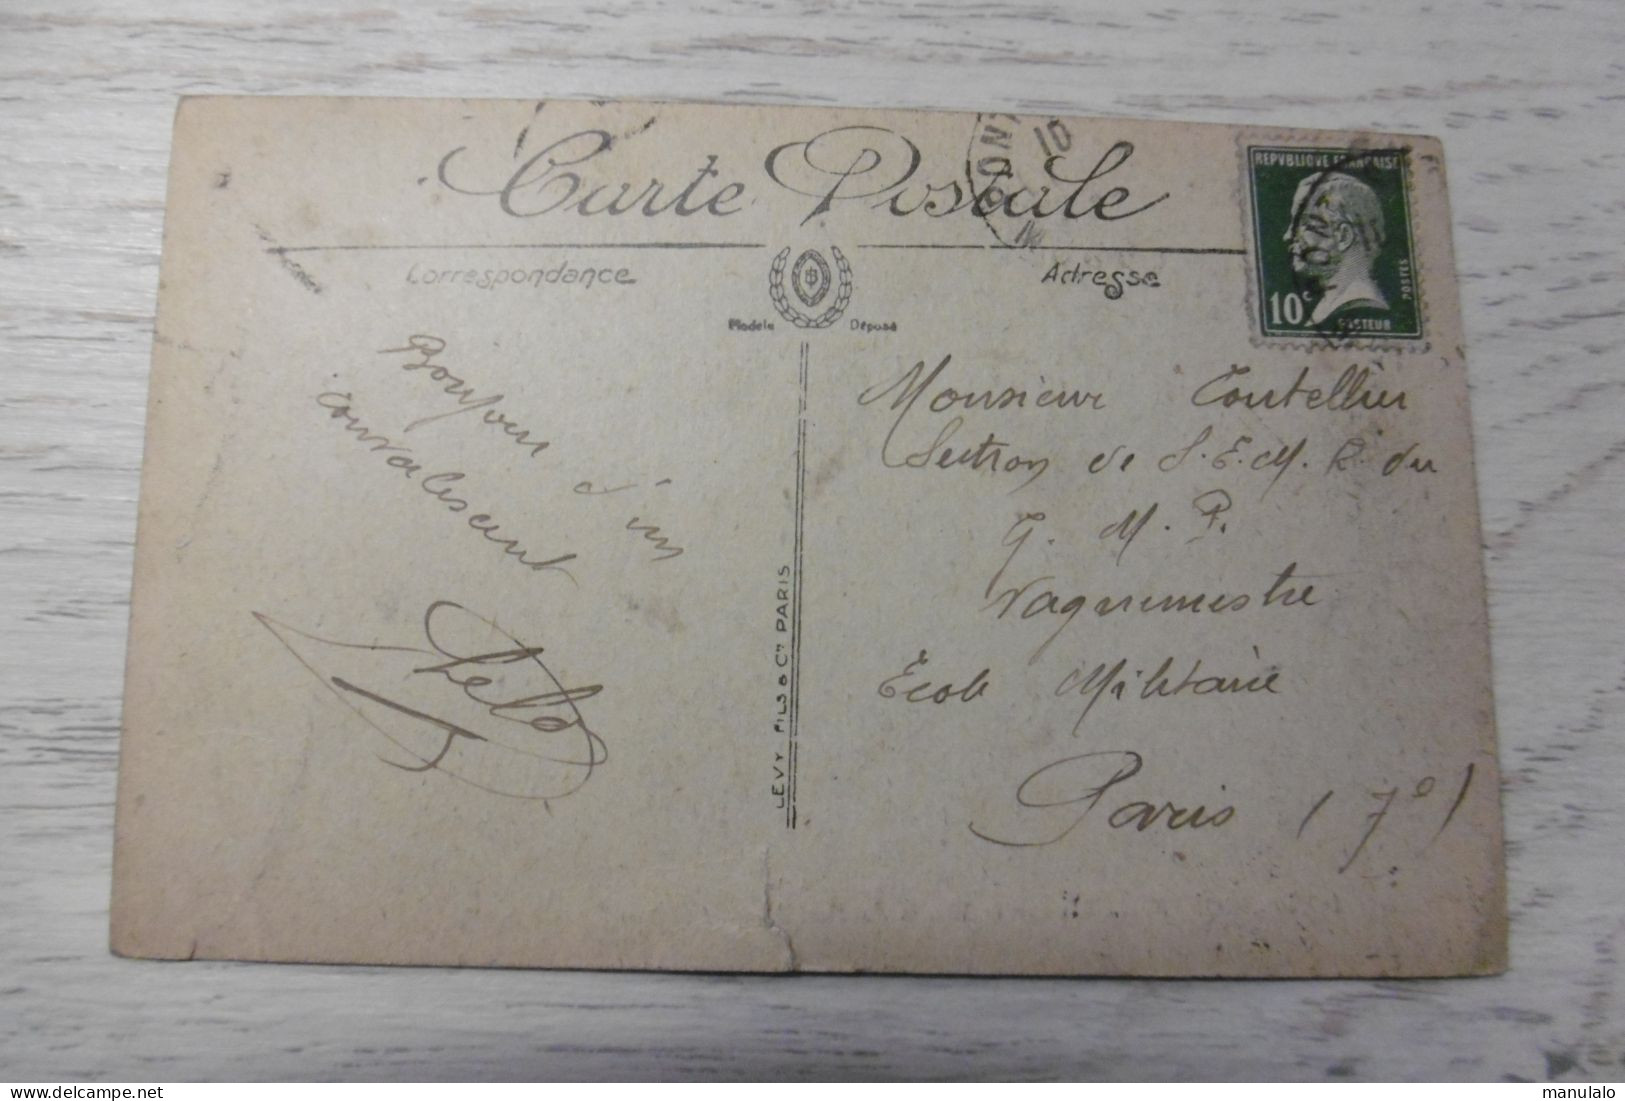 Carte Postale
Correspondance
Adresse
Modele Déposé
REPVBLIQVE FRANÇAISE
10c
POSTES
PASTEUR
10
Bonjour d'un
convalescent
LEVY FILS & Cie PARIS
Monsieur Toutellier
Section de S.E.M.R. du
G. M. P.
Vaguemestre
Ecole Militaire
Paris (7e)
delcampe.net
manulalo